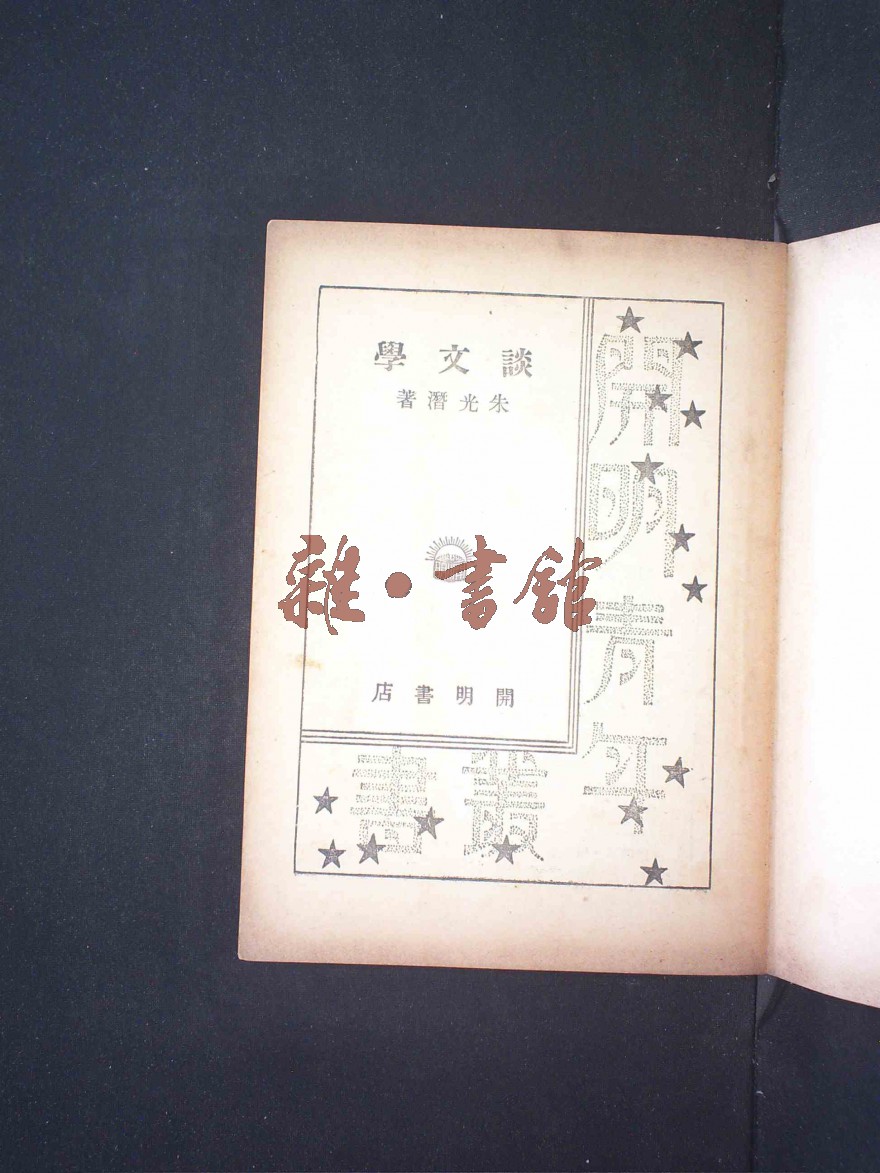 談文學
朱光潛著
雜·書館
開明書店
開明青年
叢書